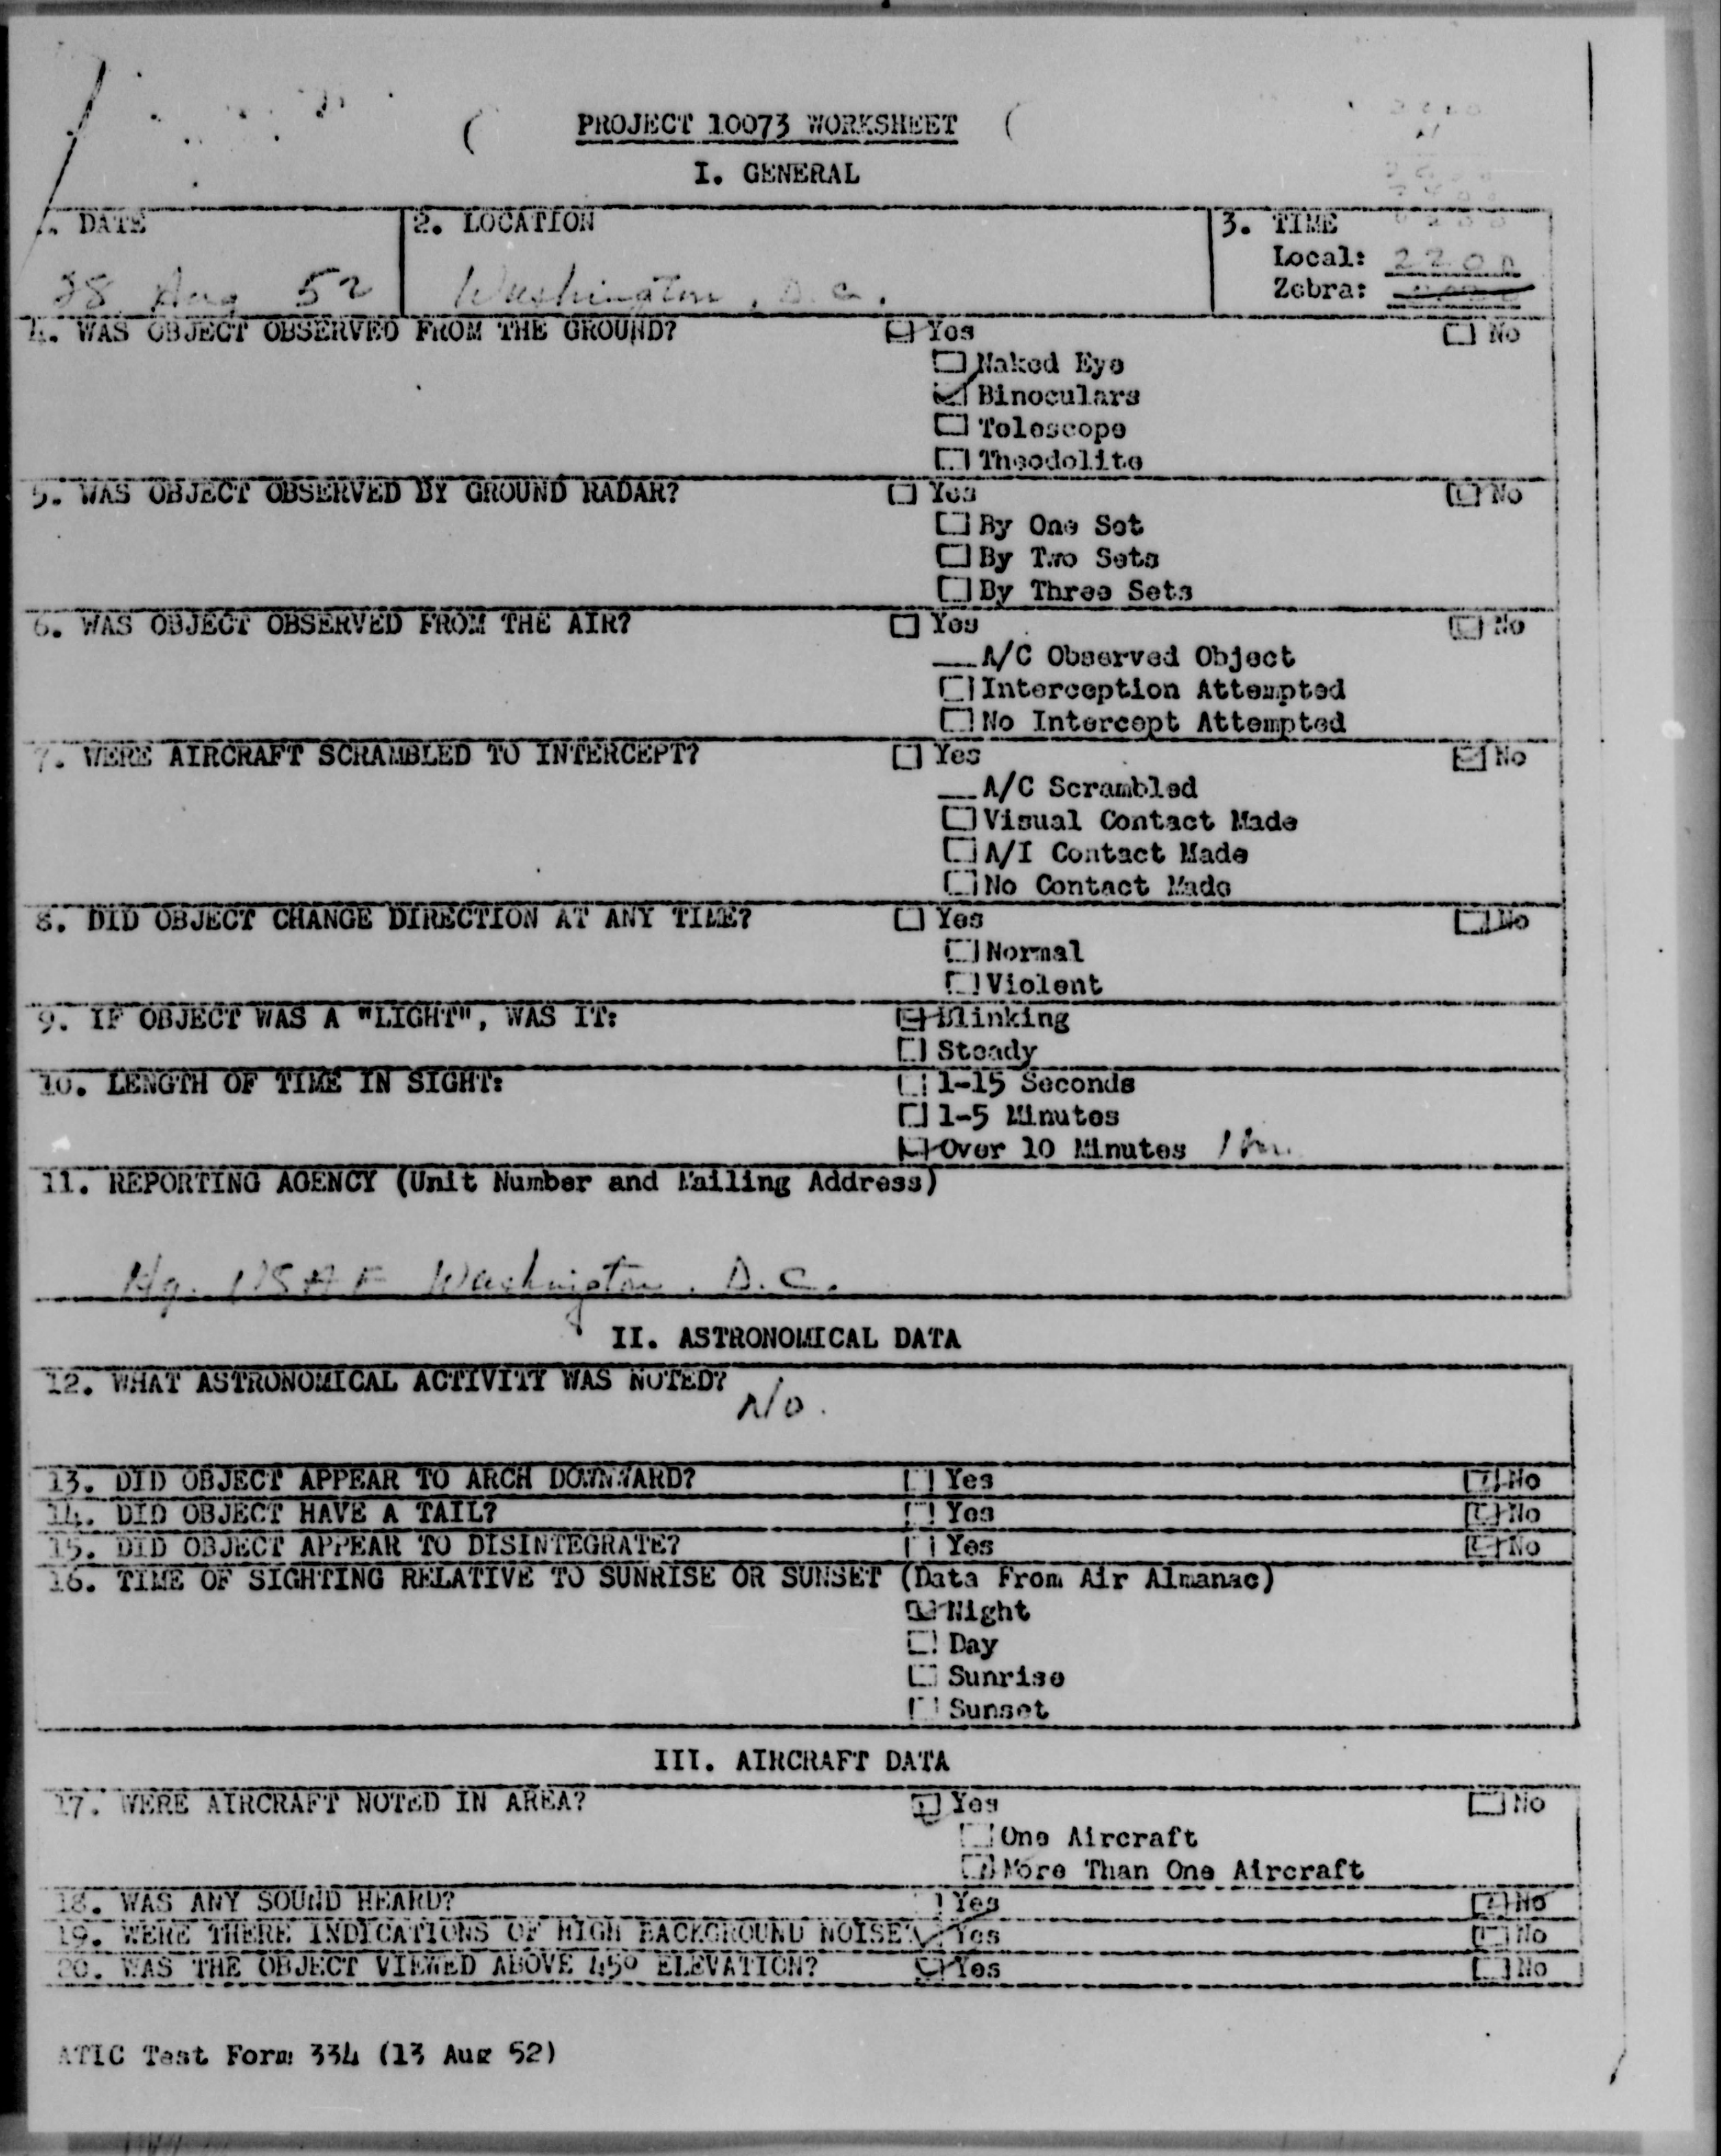 PROJECT 10073 WORKSHEET
I. GENERAL
DATE
2. LOCATION
3. TIME
28 Aug 52
Washington, D.C.
Local: 2200
Zebra:
4. WAS OBJECT OBSERVED FROM THE GROUND? Yes No
Naked Eye
Binoculars
Telescope
Theodolite
5. WAS OBJECT OBSERVED BY GROUND RADAR? Yes No
By One Set
By Two Sets
By Three Sets
6. WAS OBJECT OBSERVED FROM THE AIR? Yes No
A/C Observed Object
Interception Attempted
No Intercept Attempted
7. WERE AIRCRAFT SCRAMBLED TO INTERCEPT? Yes No
A/C Scrambled
Visual Contact Made
A/I Contact Made
No Contact Made
8. DID OBJECT CHANGE DIRECTION AT ANY TIME? Yes No
Normal
Violent
9. IF OBJECT WAS A "LIGHT", WAS IT: Blinking
Steady
10. LENGTH OF TIME IN SIGHT: 1-15 Seconds
1-5 Minutes
Over 10 Minutes 1 hr.
11. REPORTING AGENCY (Unit Number and Mailing Address)
Hq. USAF Washington, D.C.
II. ASTRONOMICAL DATA
12. WHAT ASTRONOMICAL ACTIVITY WAS NOTED?
No.
13. DID OBJECT APPEAR TO ARCH DOWNWARD? Yes No
14. DID OBJECT HAVE A TAIL? Yes No
15. DID OBJECT APPEAR TO DISINTEGRATE? Yes No
16. TIME OF SIGHTING RELATIVE TO SUNRISE OR SUNSET (Data From Air Almanac)
Night
Day
Sunrise
Sunset
III. AIRCRAFT DATA
17. WERE AIRCRAFT NOTED IN AREA? Yes No
One Aircraft
More Than One Aircraft
18. WAS ANY SOUND HEARD? Yes No
19. WERE THERE INDICATIONS OF HIGH BACKGROUND NOISE? Yes No
20. WAS THE OBJECT VIEWED ABOVE 45° ELEVATION? Yes No
ATIC Test Form 334 (13 Aug 52)